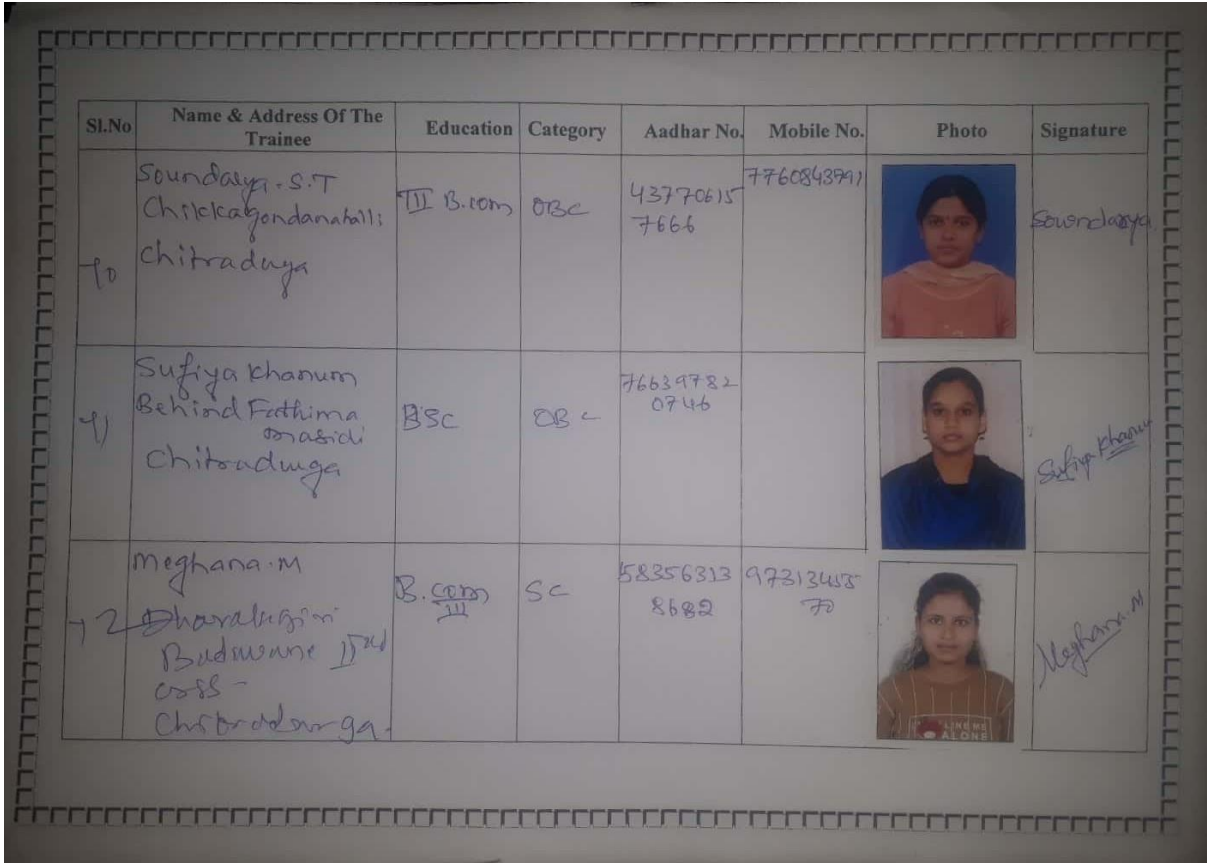 Sl.No
Name & Address Of The
Trainee
Education
Category
Aadhar No.
Mobile No.
Photo
Signature
70
Soundarya. S.T
Chikkagondanahalli
Chitraduga
III B.com
OBC
43770615
7666
7760843791
Soundarya
71
Sufiya Khanum
Behind Fathima
masidi
Chitradurga
BSC
OBC
76639782
0746
Sufiya Khanum
72
Meghana.M
Badavane IInd
cross -
Chitradurga.
B.com
III
SC
58356313
8682
97313455
70
LINE ME
ALONE
Meghana.M